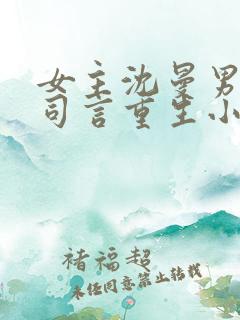 女主沈曼男
司言重生小
褚福超
未经同意禁止转载